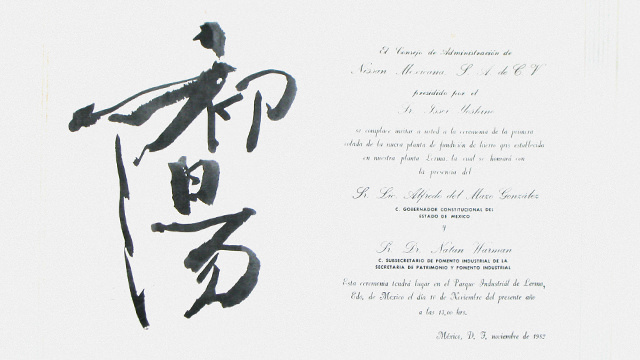 初陽
El Consejo de Administración de
Nissan Mexicana, S. A. de C. V.
presidido por el
Sr. Yoshino
se complace invitar a usted a la ceremonia de la primera
colada de la nueva planta de fundición de hierro que establecida
en nuestra planta Lerma, la cual se honrará con
la presencia del
Sr. Lic. Alfredo del Mazo González
C. GOBERNADOR CONSTITUCIONAL DEL
ESTADO DE MEXICO
y
Sr. Dr. Natan Warman
C. SUBSECRETARIO DE FOMENTO INDUSTRIAL DE LA
SECRETARIA DE PATRIMONIO Y FOMENTO INDUSTRIAL
Esta ceremonia tendrá lugar en el Parque Industrial de Lerma,
Edo. de México el día de Noviembre del presente año
a las hrs.
México, D. F. noviembre de 1982